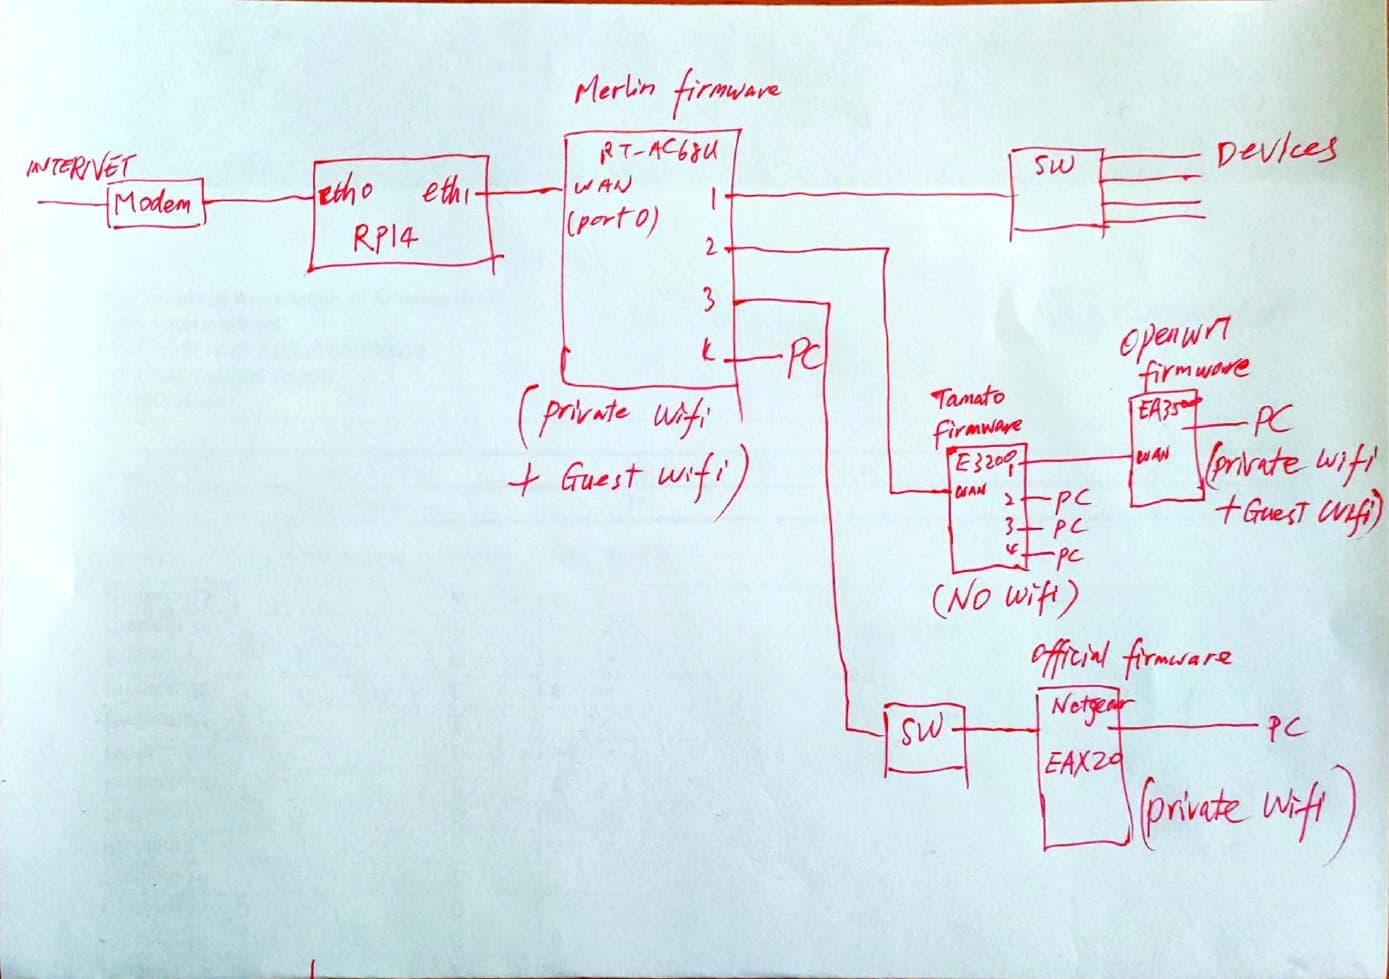 Merlin firmware
INTERNET
Modem
eth0 eth1
RPI4
RT-AC68U
WAN
(port0)
1
2
3
4
PC
(private wifi
+ Guest wifi)
SW
Devices
Tamato
firmware
E3200
WAN
1
2 PC
3 PC
4 PC
(NO wifi)
Openwrt
firmware
EA3500
WAN
PC
(private wifi
+Guest wifi)
SW
Official firmware
Netgear
EAX20
PC
(private wifi)